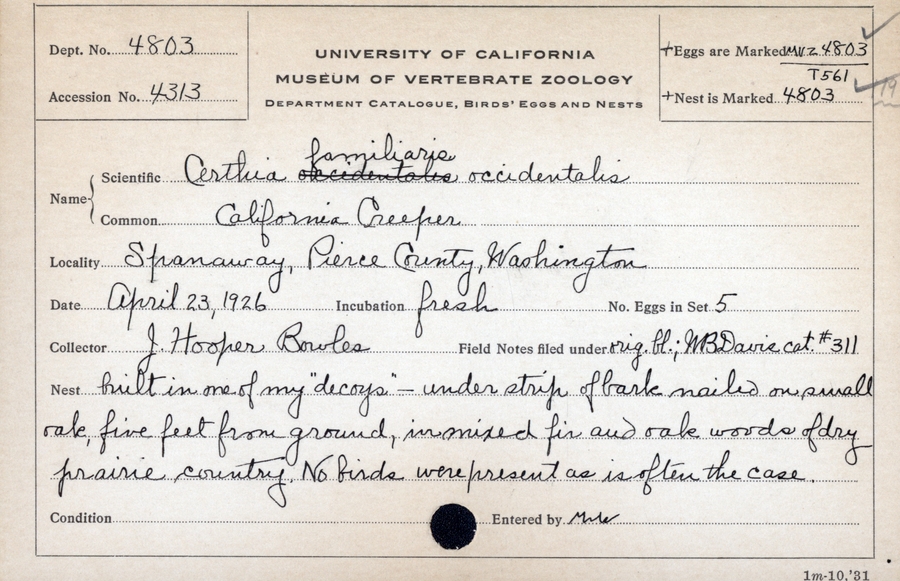 Dept. No. 4803
Accession No. 4313
UNIVERSITY OF CALIFORNIA
MUSEUM OF VERTEBRATE ZOOLOGY
DEPARTMENT CATALOGUE, BIRDS' EGGS AND NESTS
+Eggs are Marked MVZ 4803
T561
+Nest is Marked 4803
19
familiaris
Name Scientific Certhia occidentalis occidentalis
Common California Creeper
Locality Spanaway, Pierce County, Washington
Date April 23, 1926 Incubation fresh No. Eggs in Set 5
Collector J. Hooper Bowles Field Notes filed under orig. bl.; WBDavis cat. #311
Nest built in one of my "decoys" — under strip of bark nailed on small
oak, five feet from ground, in mixed fir and oak woods of dry
prairie country. No birds were present as is often the case.
Condition Entered by
1m-10,'31